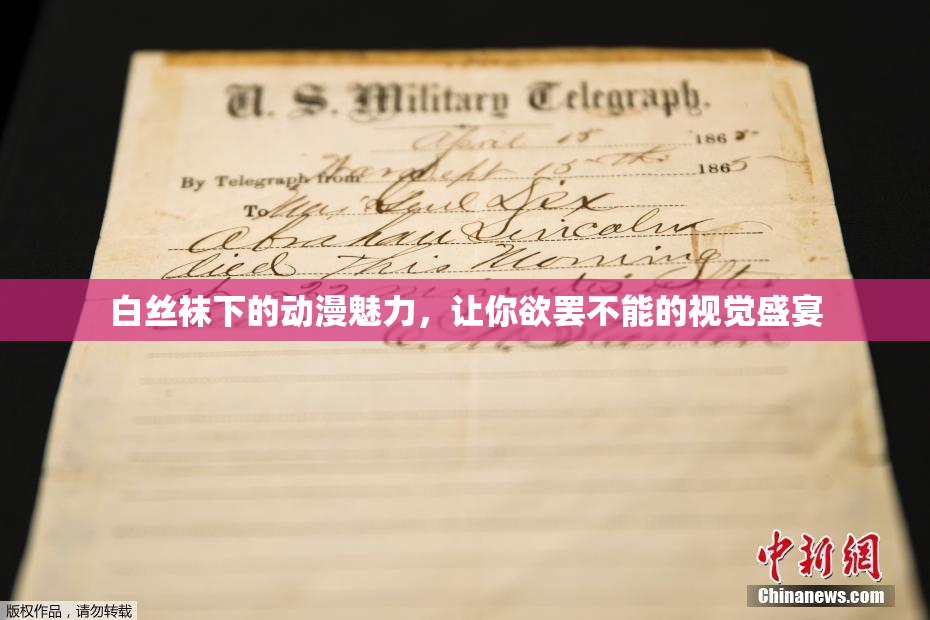 U. S. Military Telegraph.
April 15 1865
By Telegraph from War Dept 15th 1865
To Maj Genl Dix
Abraham Lincoln
died This Morning
22 minutes after
白丝袜下的动漫魅力，让你欲罢不能的视觉盛宴
E. M. Stanton
中新网
Chinanews.com
版权作品，请勿转载